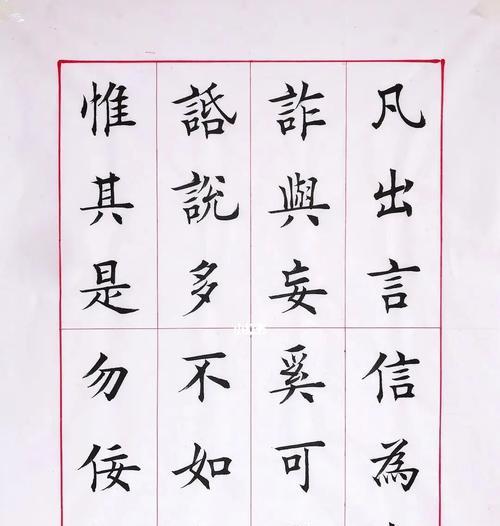 凡出言信為
詐與妄奚可
諙說多不如
惟其是勿佞